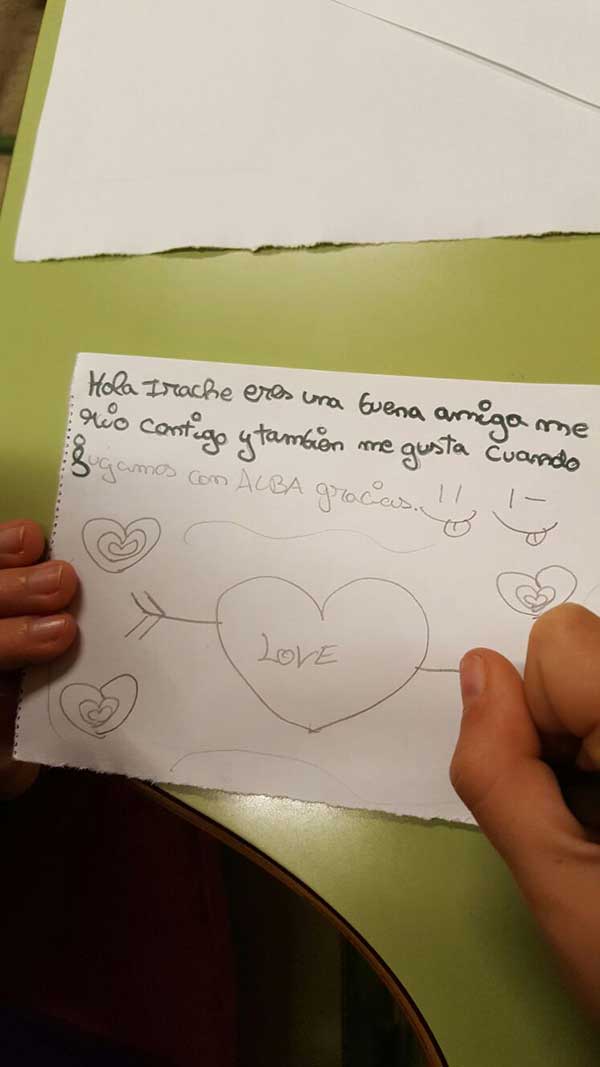 Hola Irache eres una buena amiga me
río contigo y también me gusta cuando
jugamos con ALBA gracias.
LOVE